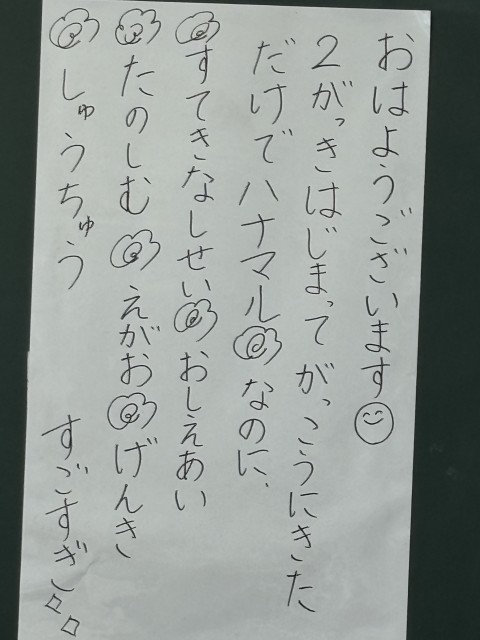 おはようございます
2がっきはじまってがっこうにきた
だけでハナマルなのに、
すてきなしせい おしえあい
たのしむ えがお げんき
しゅうちゅう すごすぎ